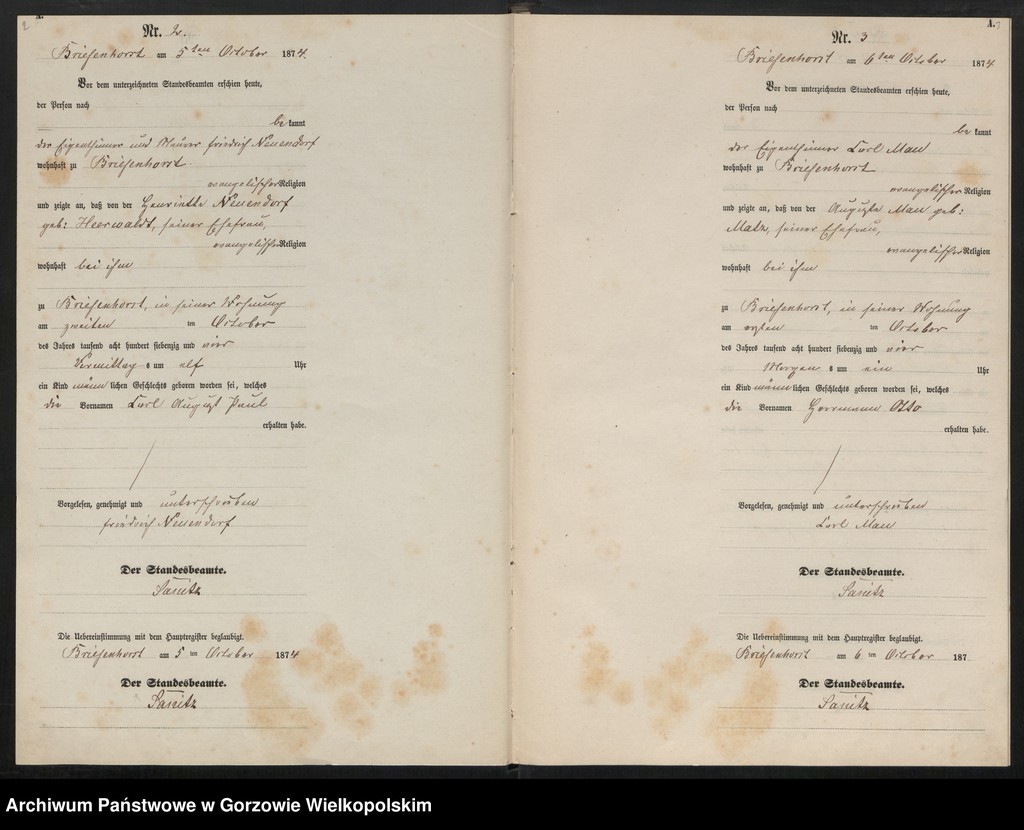 2
A.
Nr. 2.
Briesenhorst am 5ten October 1874.
Vor dem unterzeichneten Standesbeamten erschien heute,
der Person nach
be kannt
der Eigenthümer und Maurer Friedrich Neuendorf
wohnhaft zu Briesenhorst
evangelischer Religion
und zeigte an, daß von der Henriette Neuendorf
geb: Heerwaldt, seiner Ehefrau,
evangelischer Religion
wohnhaft bei ihm
zu Briesenhorst, in seiner Wohnung
am zweiten ten October
des Jahres tausend acht hundert siebenzig und vier
Vormittags um elf Uhr
ein Kind männlichen Geschlechts geboren worden sei, welches
die Vornamen Carl August Paul
erhalten habe.
Vorgelesen, genehmigt und unterschrieben
Friedrich Neuendorf
Der Standesbeamte.
Sanitz
Die Uebereinstimmung mit dem Hauptregister beglaubigt.
Briesenhorst am 5 ten October 1874
Der Standesbeamte.
Sanitz
A. 3
Nr. 3
Briesenhorst am 6ten October 1874
Vor dem unterzeichneten Standesbeamten erschien heute,
der Person nach
be kannt
der Eigenthümer Carl Mau
wohnhaft zu Briesenhorst
evangelischer Religion
und zeigte an, daß von der Auguste Mau geb:
Matz, seiner Ehefrau,
evangelischer Religion
wohnhaft bei ihm
zu Briesenhorst, in seiner Wohnung
am ersten ten October
des Jahres tausend acht hundert siebenzig und vier
Morgens um ein Uhr
ein Kind männlichen Geschlechts geboren worden sei, welches
die Vornamen Herrmann Otto
erhalten habe.
Vorgelesen, genehmigt und unterschrieben
Carl Mau
Der Standesbeamte.
Sanitz
Die Uebereinstimmung mit dem Hauptregister beglaubigt.
Briesenhorst am 6 ten October 187
Der Standesbeamte.
Sanitz
Archiwum Państwowe w Gorzowie Wielkopolskim